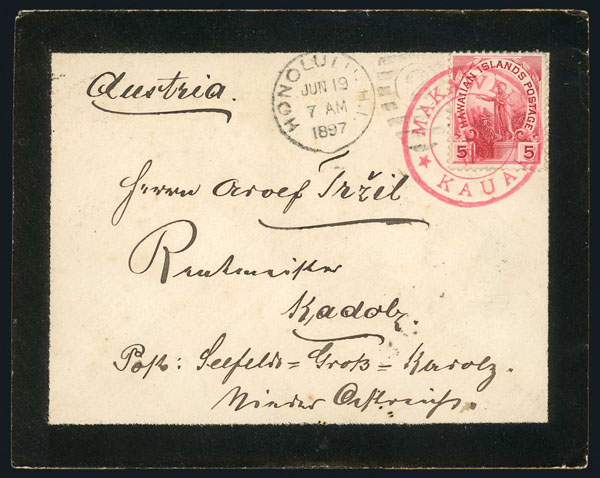 Austria.
HONOLULU H.I.
JUN 19
7 AM
1897
HAWAIIAN ISLANDS POSTAGE
5 5
MAKAW
KAUA
Herrn Adolf Tržil
Rentmeister
Kadolz.
Post: Seefeld = Groß = Kadolz.
Nieder Oestreich.